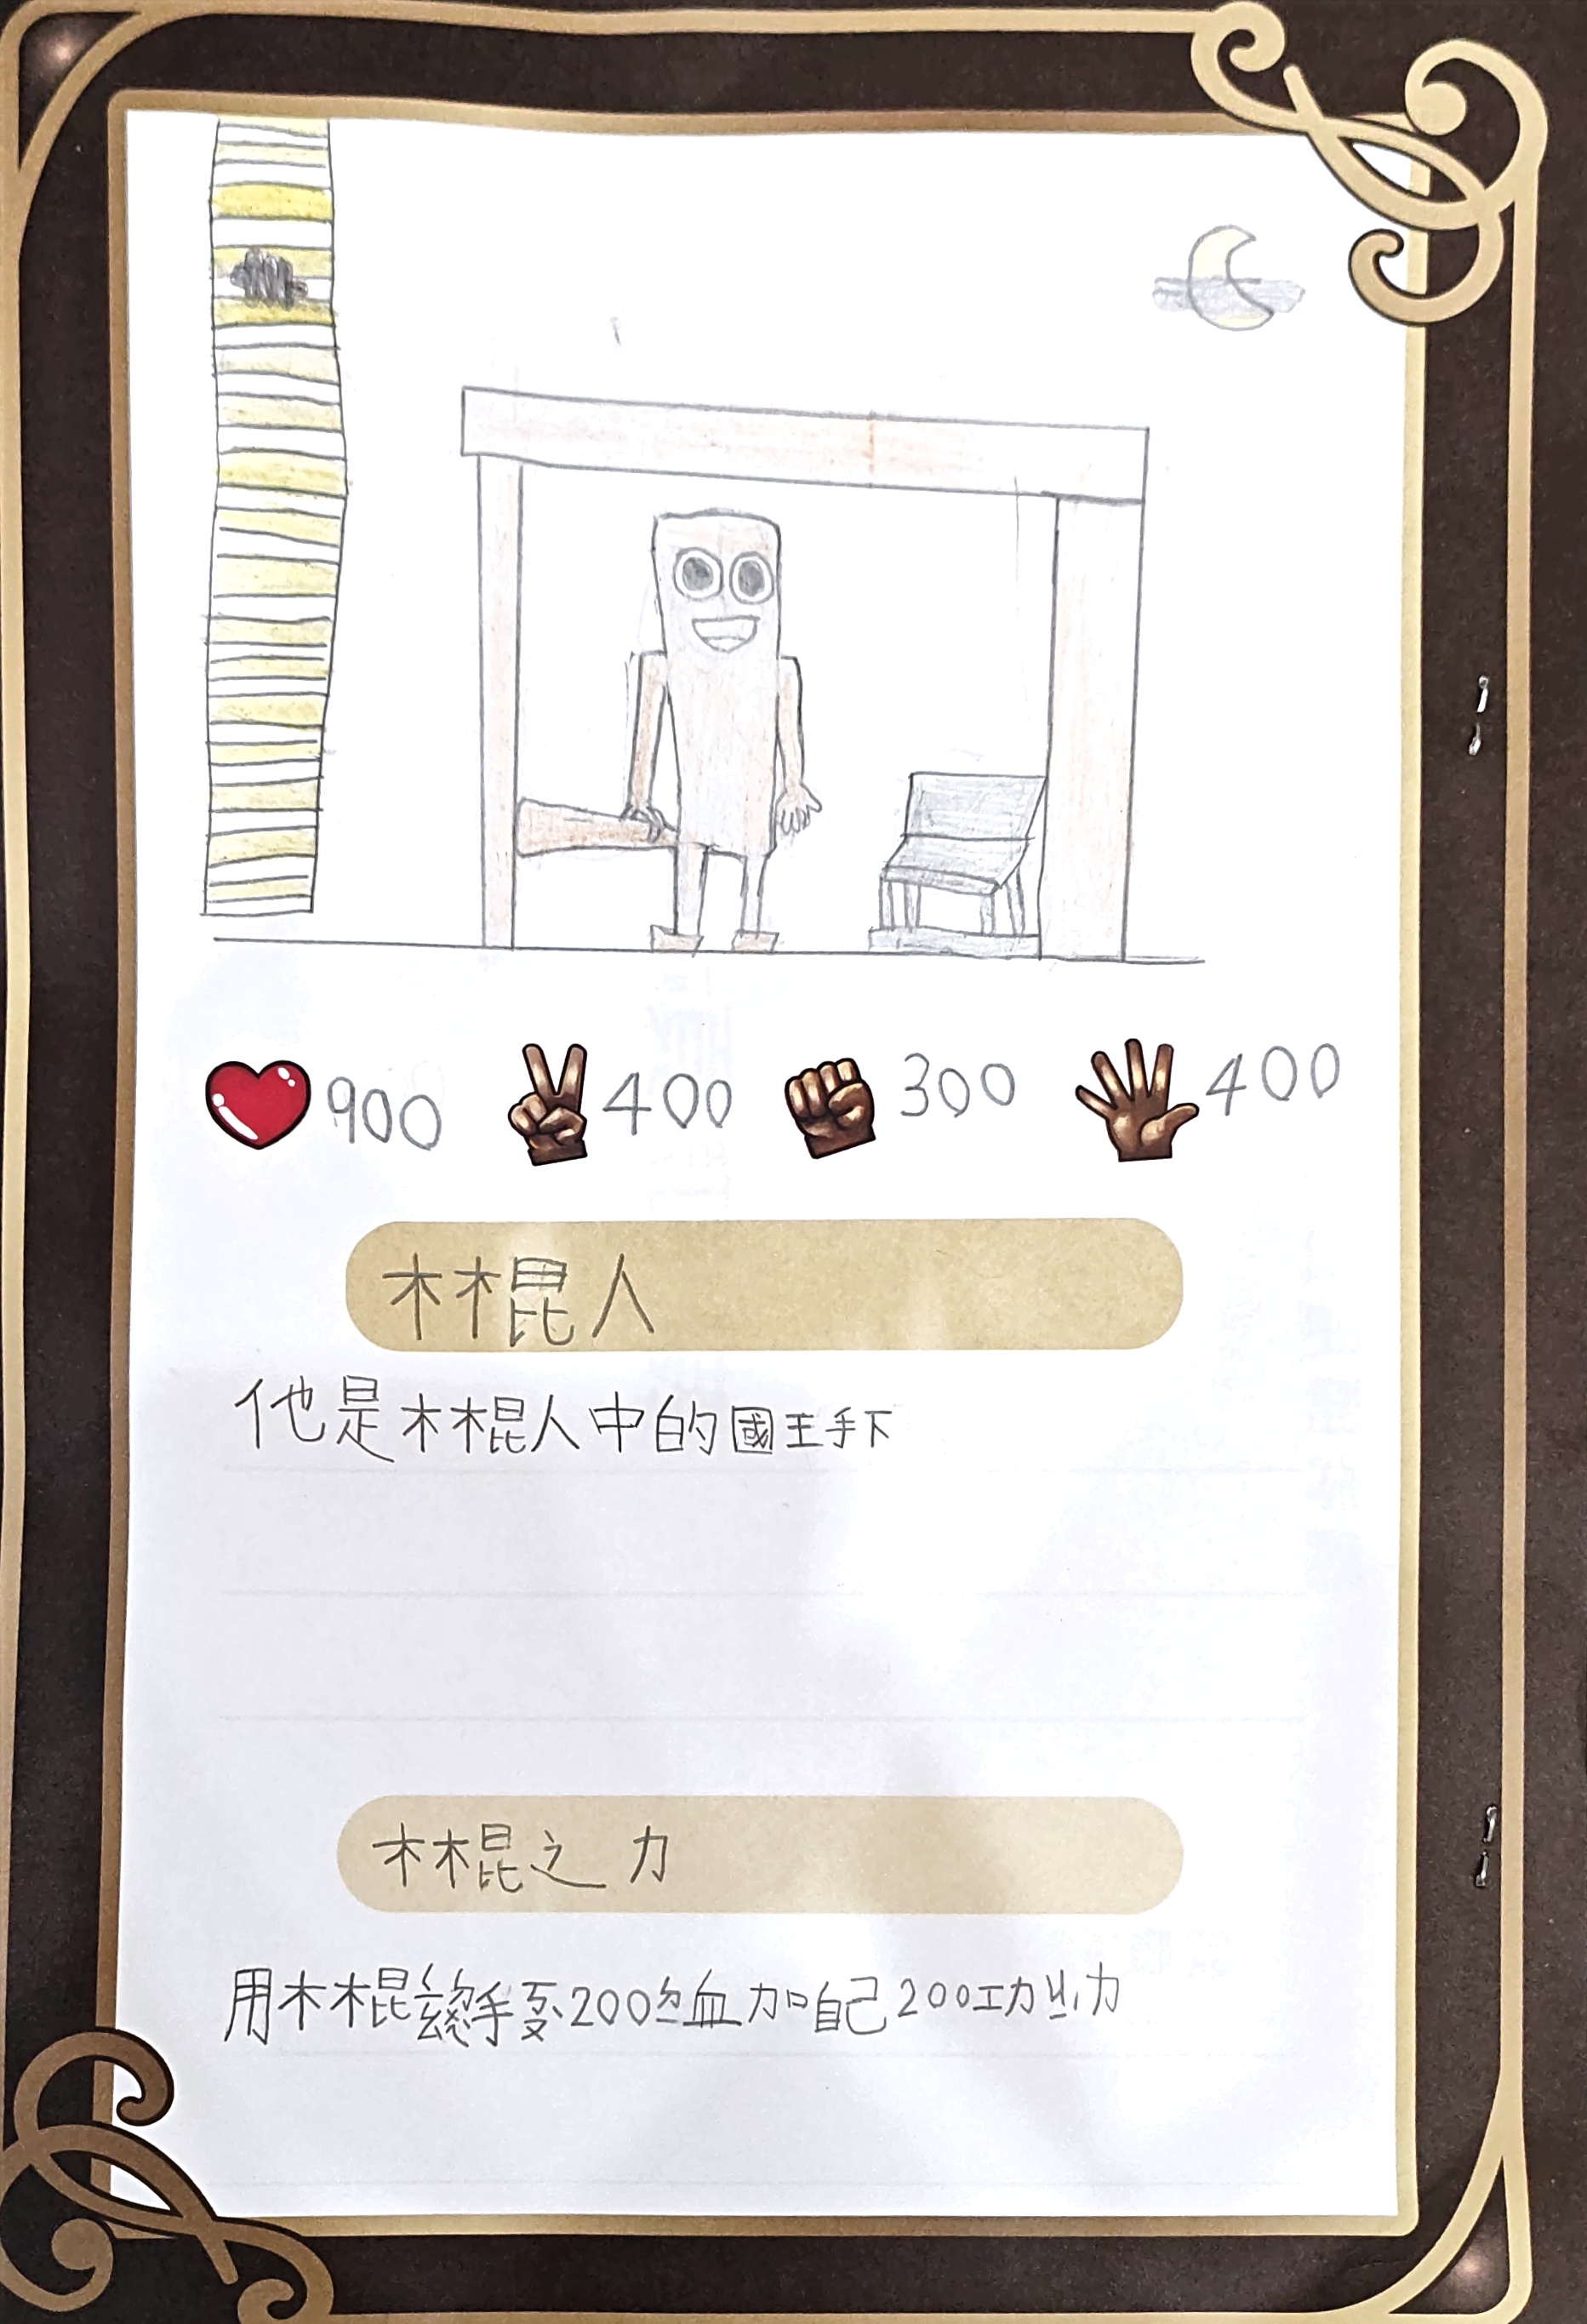 900 400 300 400
木棍人
他是木棍人中的國王手下
木棍之力
用木棍 手 200 血加自己200功 力